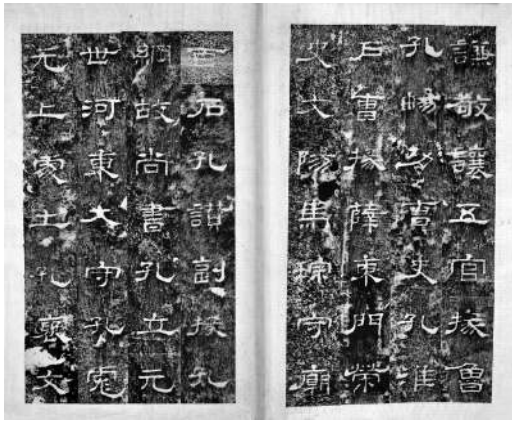 謙敬讓五官掾魯
孔暢功曹史孔淮
戶曹掾薛東門榮
史文陽馬琮守廟
百石孔讃副掾孔
綱故尚書孔立元
世河東大守孔彪
元上處士孔褒文